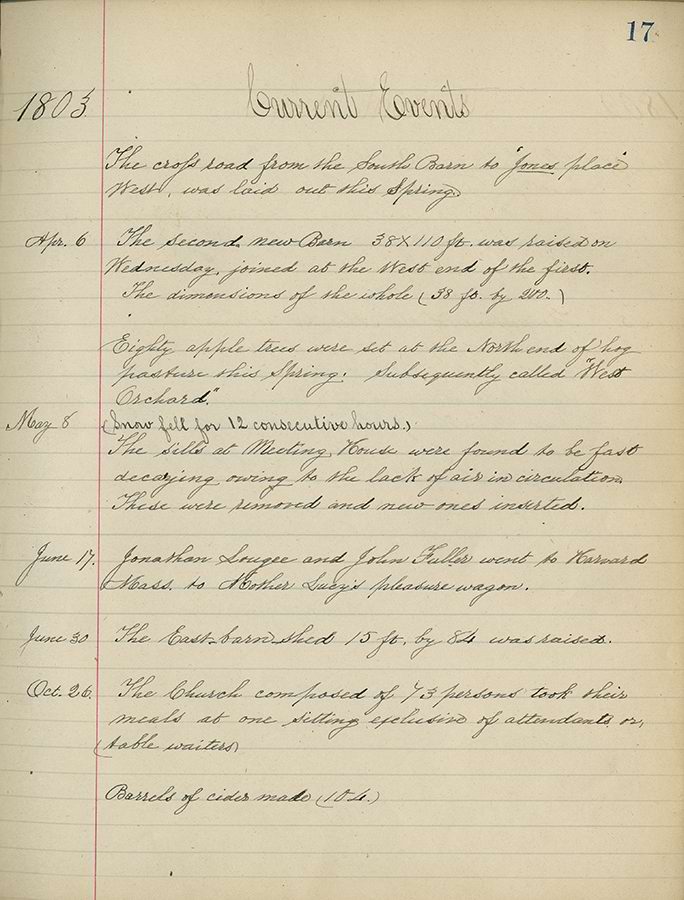 17
Current Events
1803
The cross road from the South Barn to "Jones place"
West, was laid out this Spring.
Apr. 6 The second new Barn 38 x 110 ft. was raised on
Wednesday, joined at the West end of the first.
The dimensions of the whole (38 ft. by 200.)
Eighty apple trees were set at the North end of hog
pasture this Spring. Subsequently called "West
Orchard."
May 8 (Snow fell for 12 consecutive hours.)
The sills at Meeting House were found to be fast
decaying owing to the lack of air in circulation
These were removed and new ones inserted.
June 17. Jonathan Lougee and John Fuller went to Harvard
Mass. to Mother Lucy's pleasure wagon.
June 30 The East barn shed 15 ft. by 84 was raised.
Oct. 26. The Church composed of 73 persons took their
meals at one sitting exclusive of attendants or,
(table waiters)
Barrels of cider made (104.)